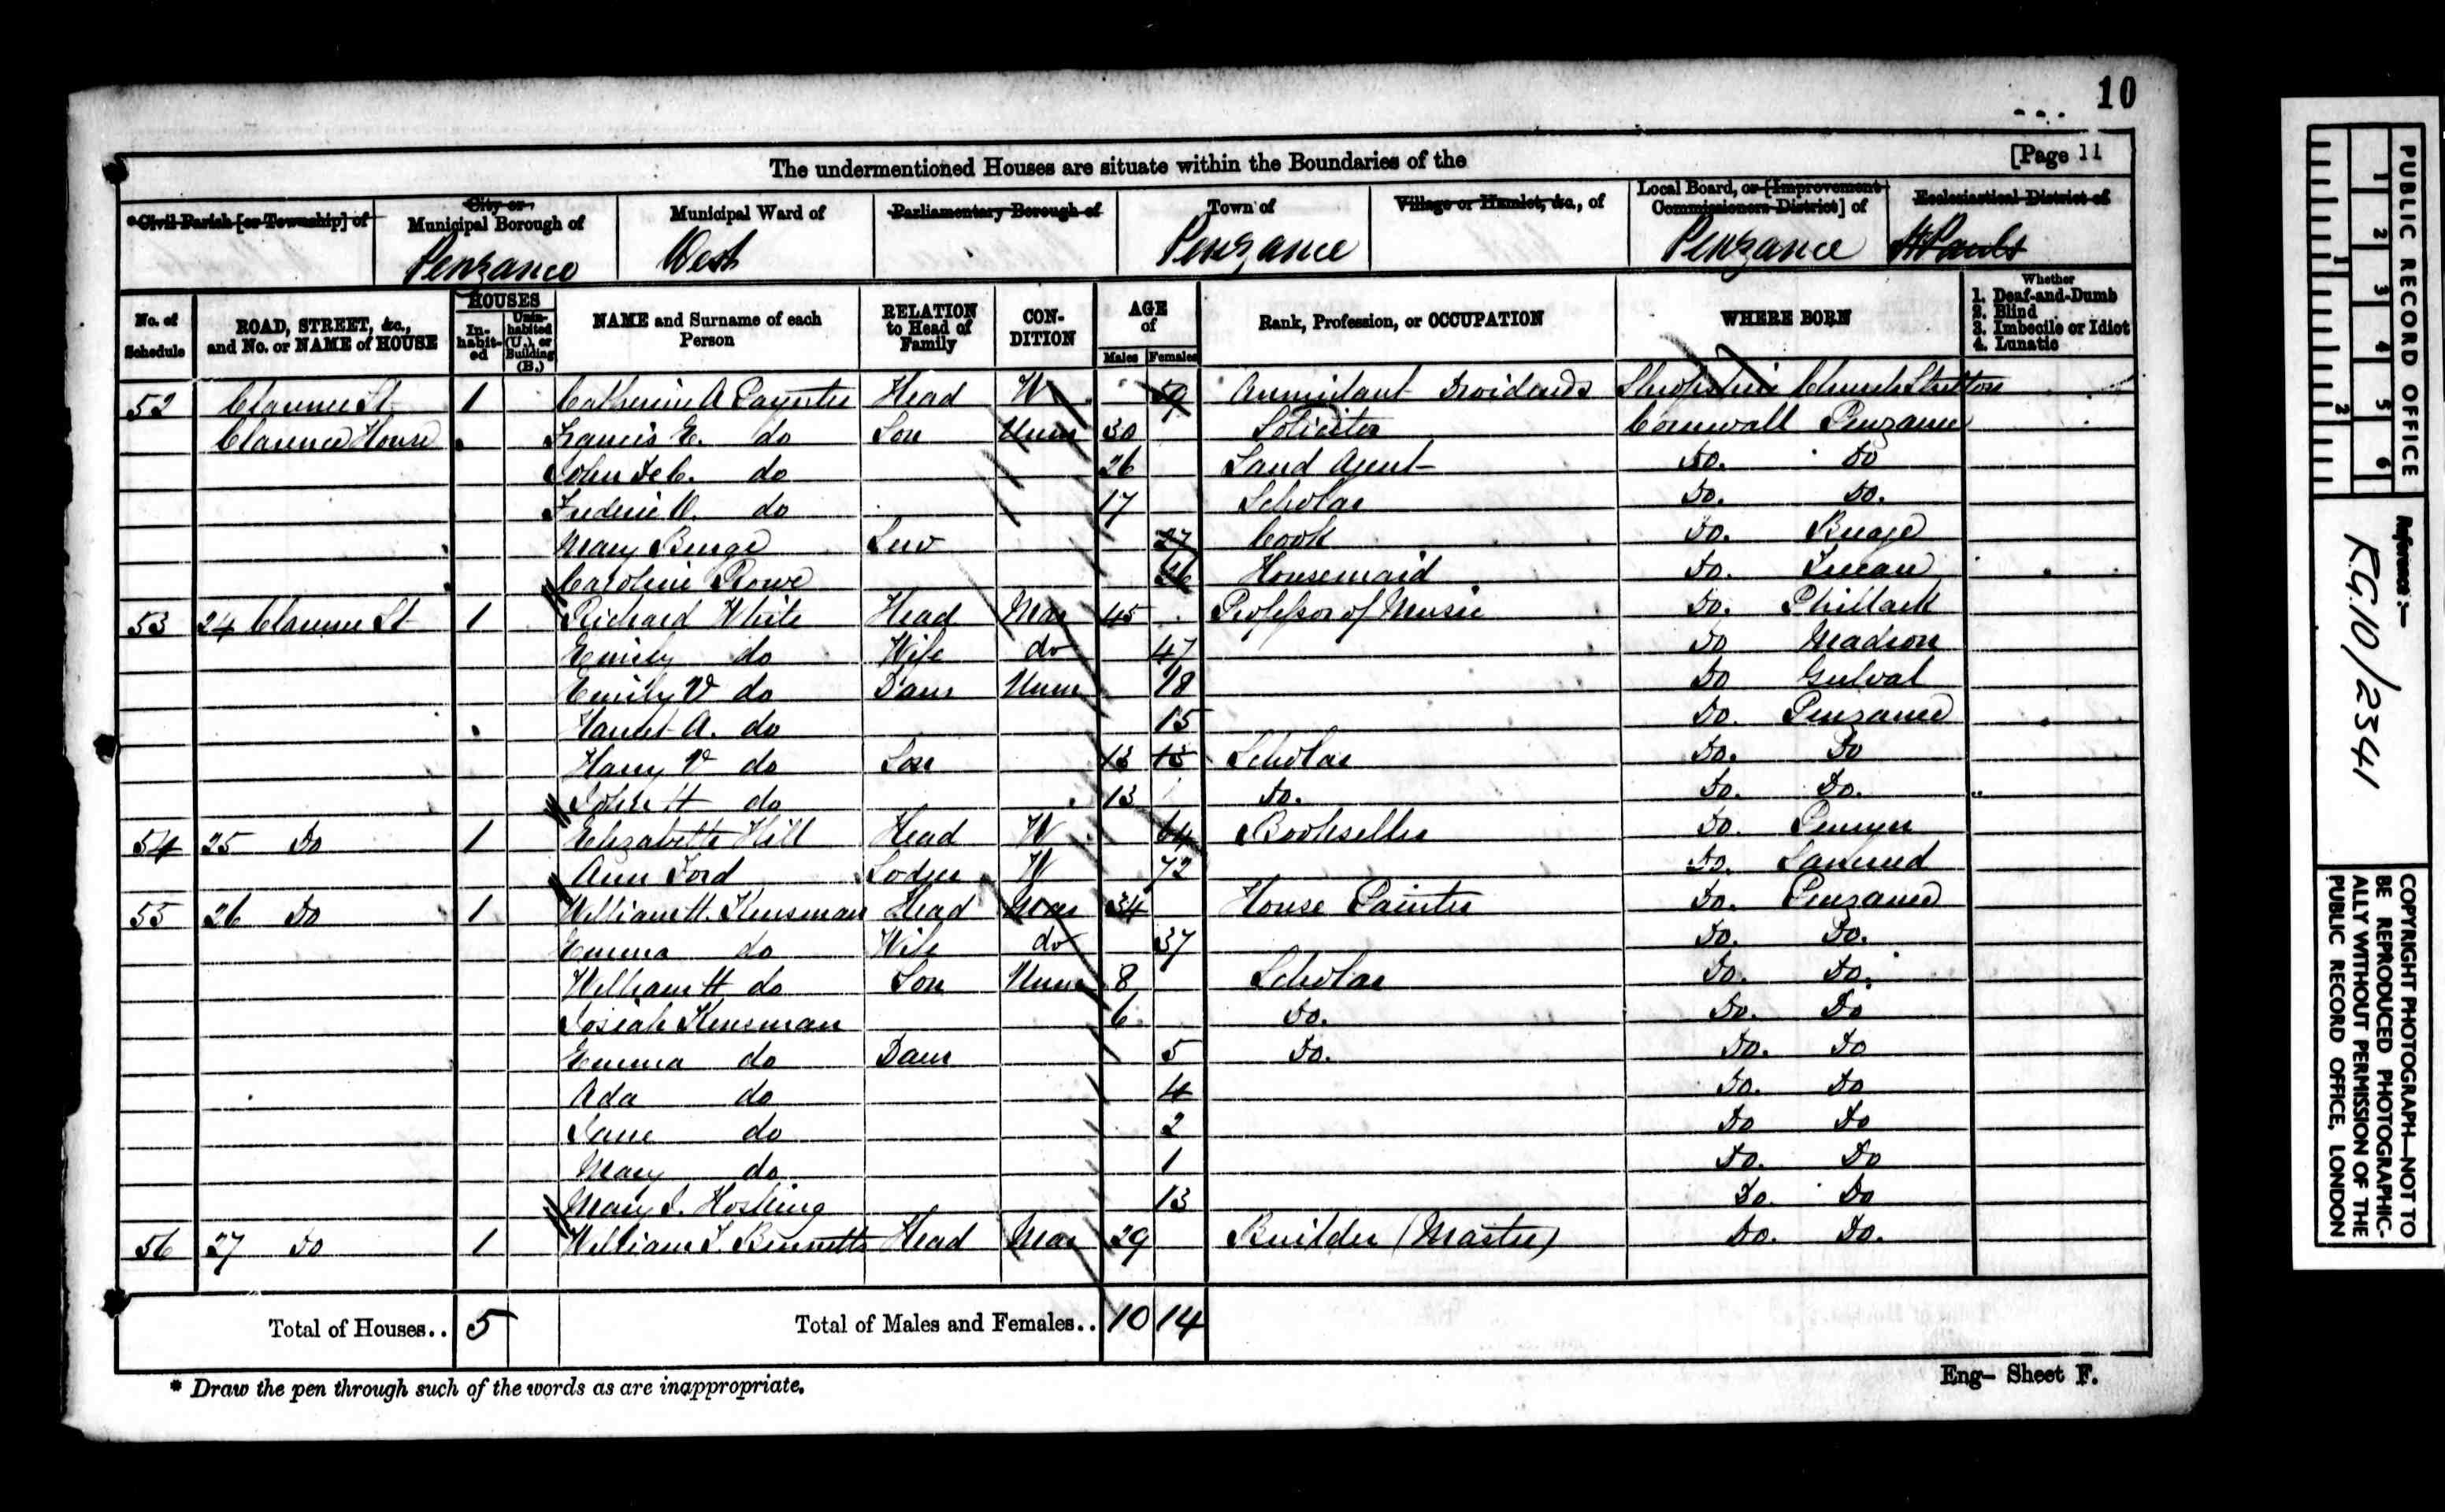 10
The undermentioned Houses are situate within the Boundaries of the
[Page 11
*Civil Parish [or Township] of
City or Municipal Borough of
Penzance
Municipal Ward of
West
Parliamentary Borough of
Town of
Penzance
Village or Hamlet, &c., of
Local Board, or [Improvement Commissioners District] of
Penzance
Ecclesiastical District of
St Pauls
No. of Schedule
ROAD, STREET, &c., and No. or NAME of HOUSE
HOUSES
In-habit-ed
Unin-habited (U.), or Building (B.)
NAME and Surname of each Person
RELATION to Head of Family
CON-DITION
AGE of
Males Females
Rank, Profession, or OCCUPATION
WHERE BORN
Whether
1. Deaf-and-Dumb
2. Blind
3. Imbecile or Idiot
4. Lunatic
52 Clarence St 1 Catherine A Paynter Head W 59 Annuitant Dividends Shropshire Church Stretton
Clarence House Francis E. do Son Unm 30 Solicitor Cornwall Penzance
John De C. do 26 Land Agent Do. Do
Frederic do 17 Scholar Do. Do.
Mary Serv 27 Cook Do. Breage
Caroline Rowe 26 Housemaid Do.
53 24 Clarence St 1 Richard White Head Mar 45 Professor of Music Do. Phillack
Emily do Wife do 47 Do Madron
Emily V do Daur Unm 18 Do Gulval
Harriet A. do 15 Do. Penzance
Harry V do Son 13 15 Scholar Do. Do
John H do 13 Do. Do. Do.
54 25 Do 1 Elizabeth Hill Head W 64 Bookseller Do. Penryn
Ann Ford Lodger W 72 Do.
55 26 Do 1 William H. Kinsman Head Mar 34 House Painter Do. Penzance
Emma do Wife do 37 Do. Do.
William H do Son Unm 8 Scholar Do. Do.
Josiah Kinsman 6 Do. Do. Do
Emma do Daur 5 Do. Do. Do
Ada do 4 Do. Do
Jane do 2 Do Do
Mary do 1 Do. Do
Mary J. Hosking 13 Do. Do
56 27 Do 1 William J. Bennetts Head Mar 29 Builder (Master) Do. Do.
Total of Houses.. 5
Total of Males and Females.. 10 14
* Draw the pen through such of the words as are inappropriate.
Eng- Sheet F.
PUBLIC RECORD OFFICE
1 2 3 4 5 6
1 2
Reference:-
RG10/2341
COPYRIGHT PHOTOGRAPH—NOT TO BE REPRODUCED PHOTOGRAPHIC-ALLY WITHOUT PERMISSION OF THE PUBLIC RECORD OFFICE, LONDON